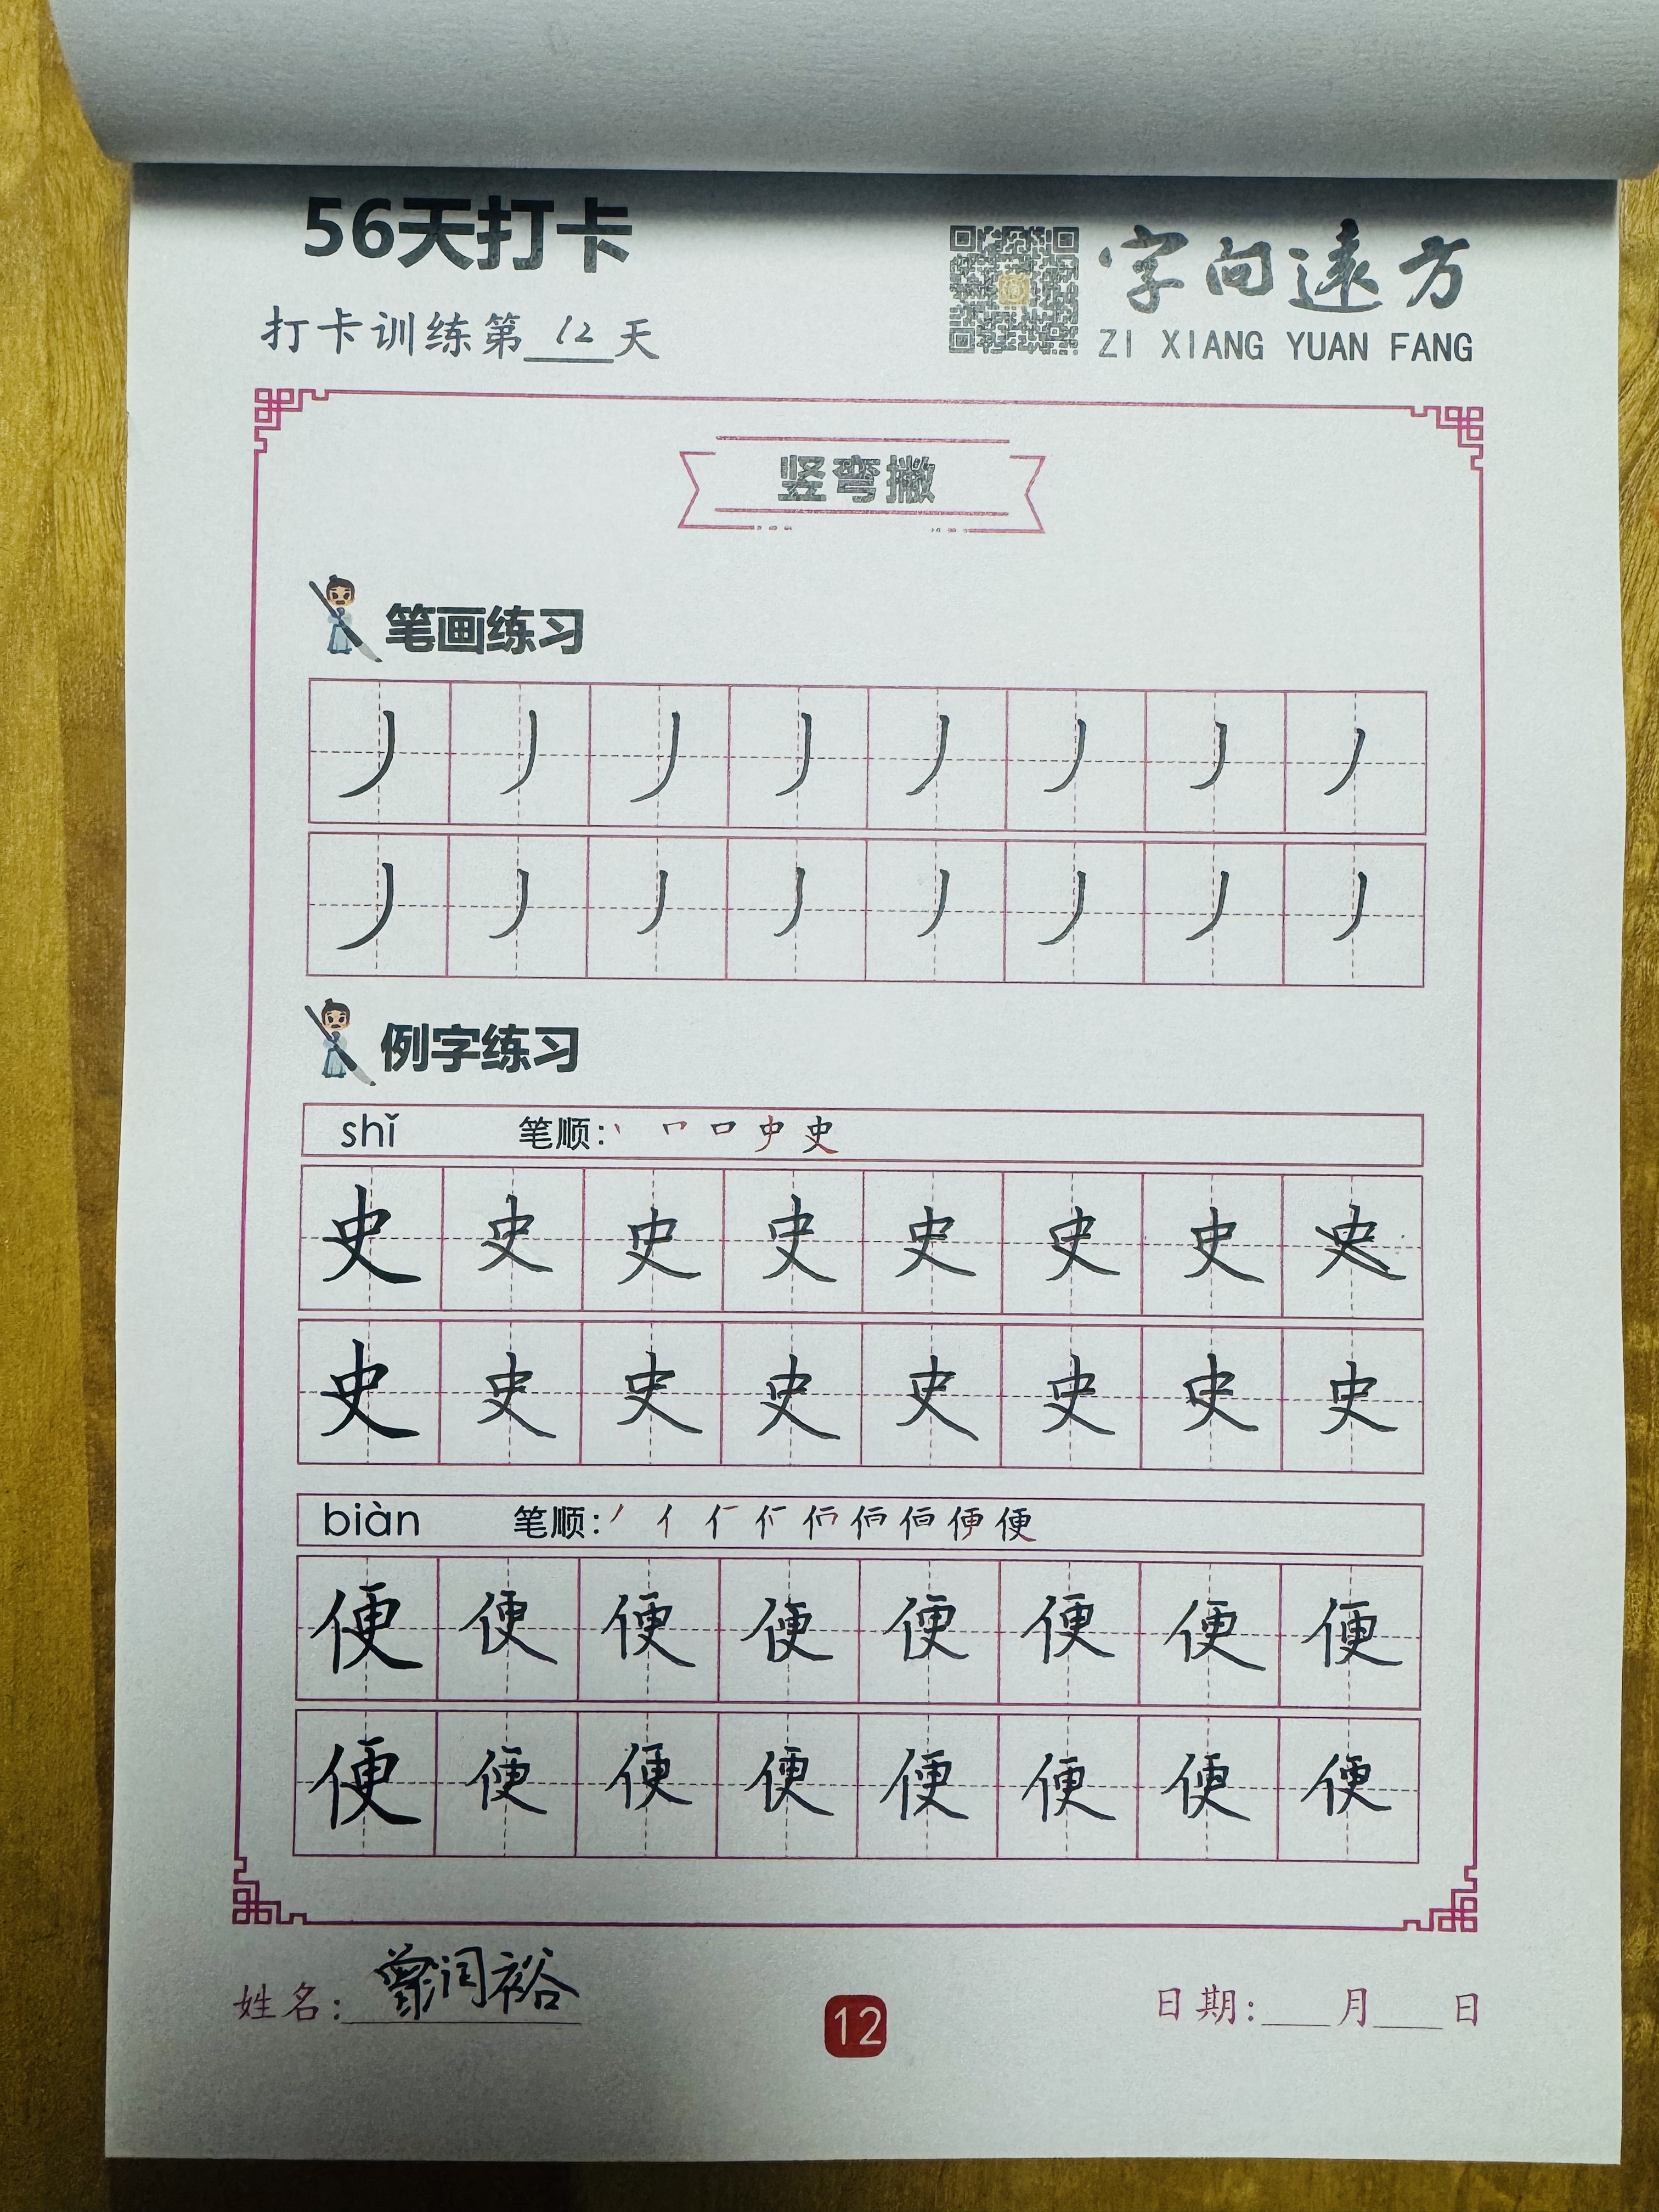 56天打卡
打卡训练第12天
字向遠方
ZI XIANG YUAN FANG
竖弯撇
笔画练习
丿丿丿丿丿丿丿丿
丿丿丿丿丿丿丿丿
例字练习
shǐ 笔顺:
史史史史史史史史
史史史史史史史史
biàn 笔顺:
便便便便便便便便
便便便便便便便便
姓名:曾润裕
12
日期:___月___日